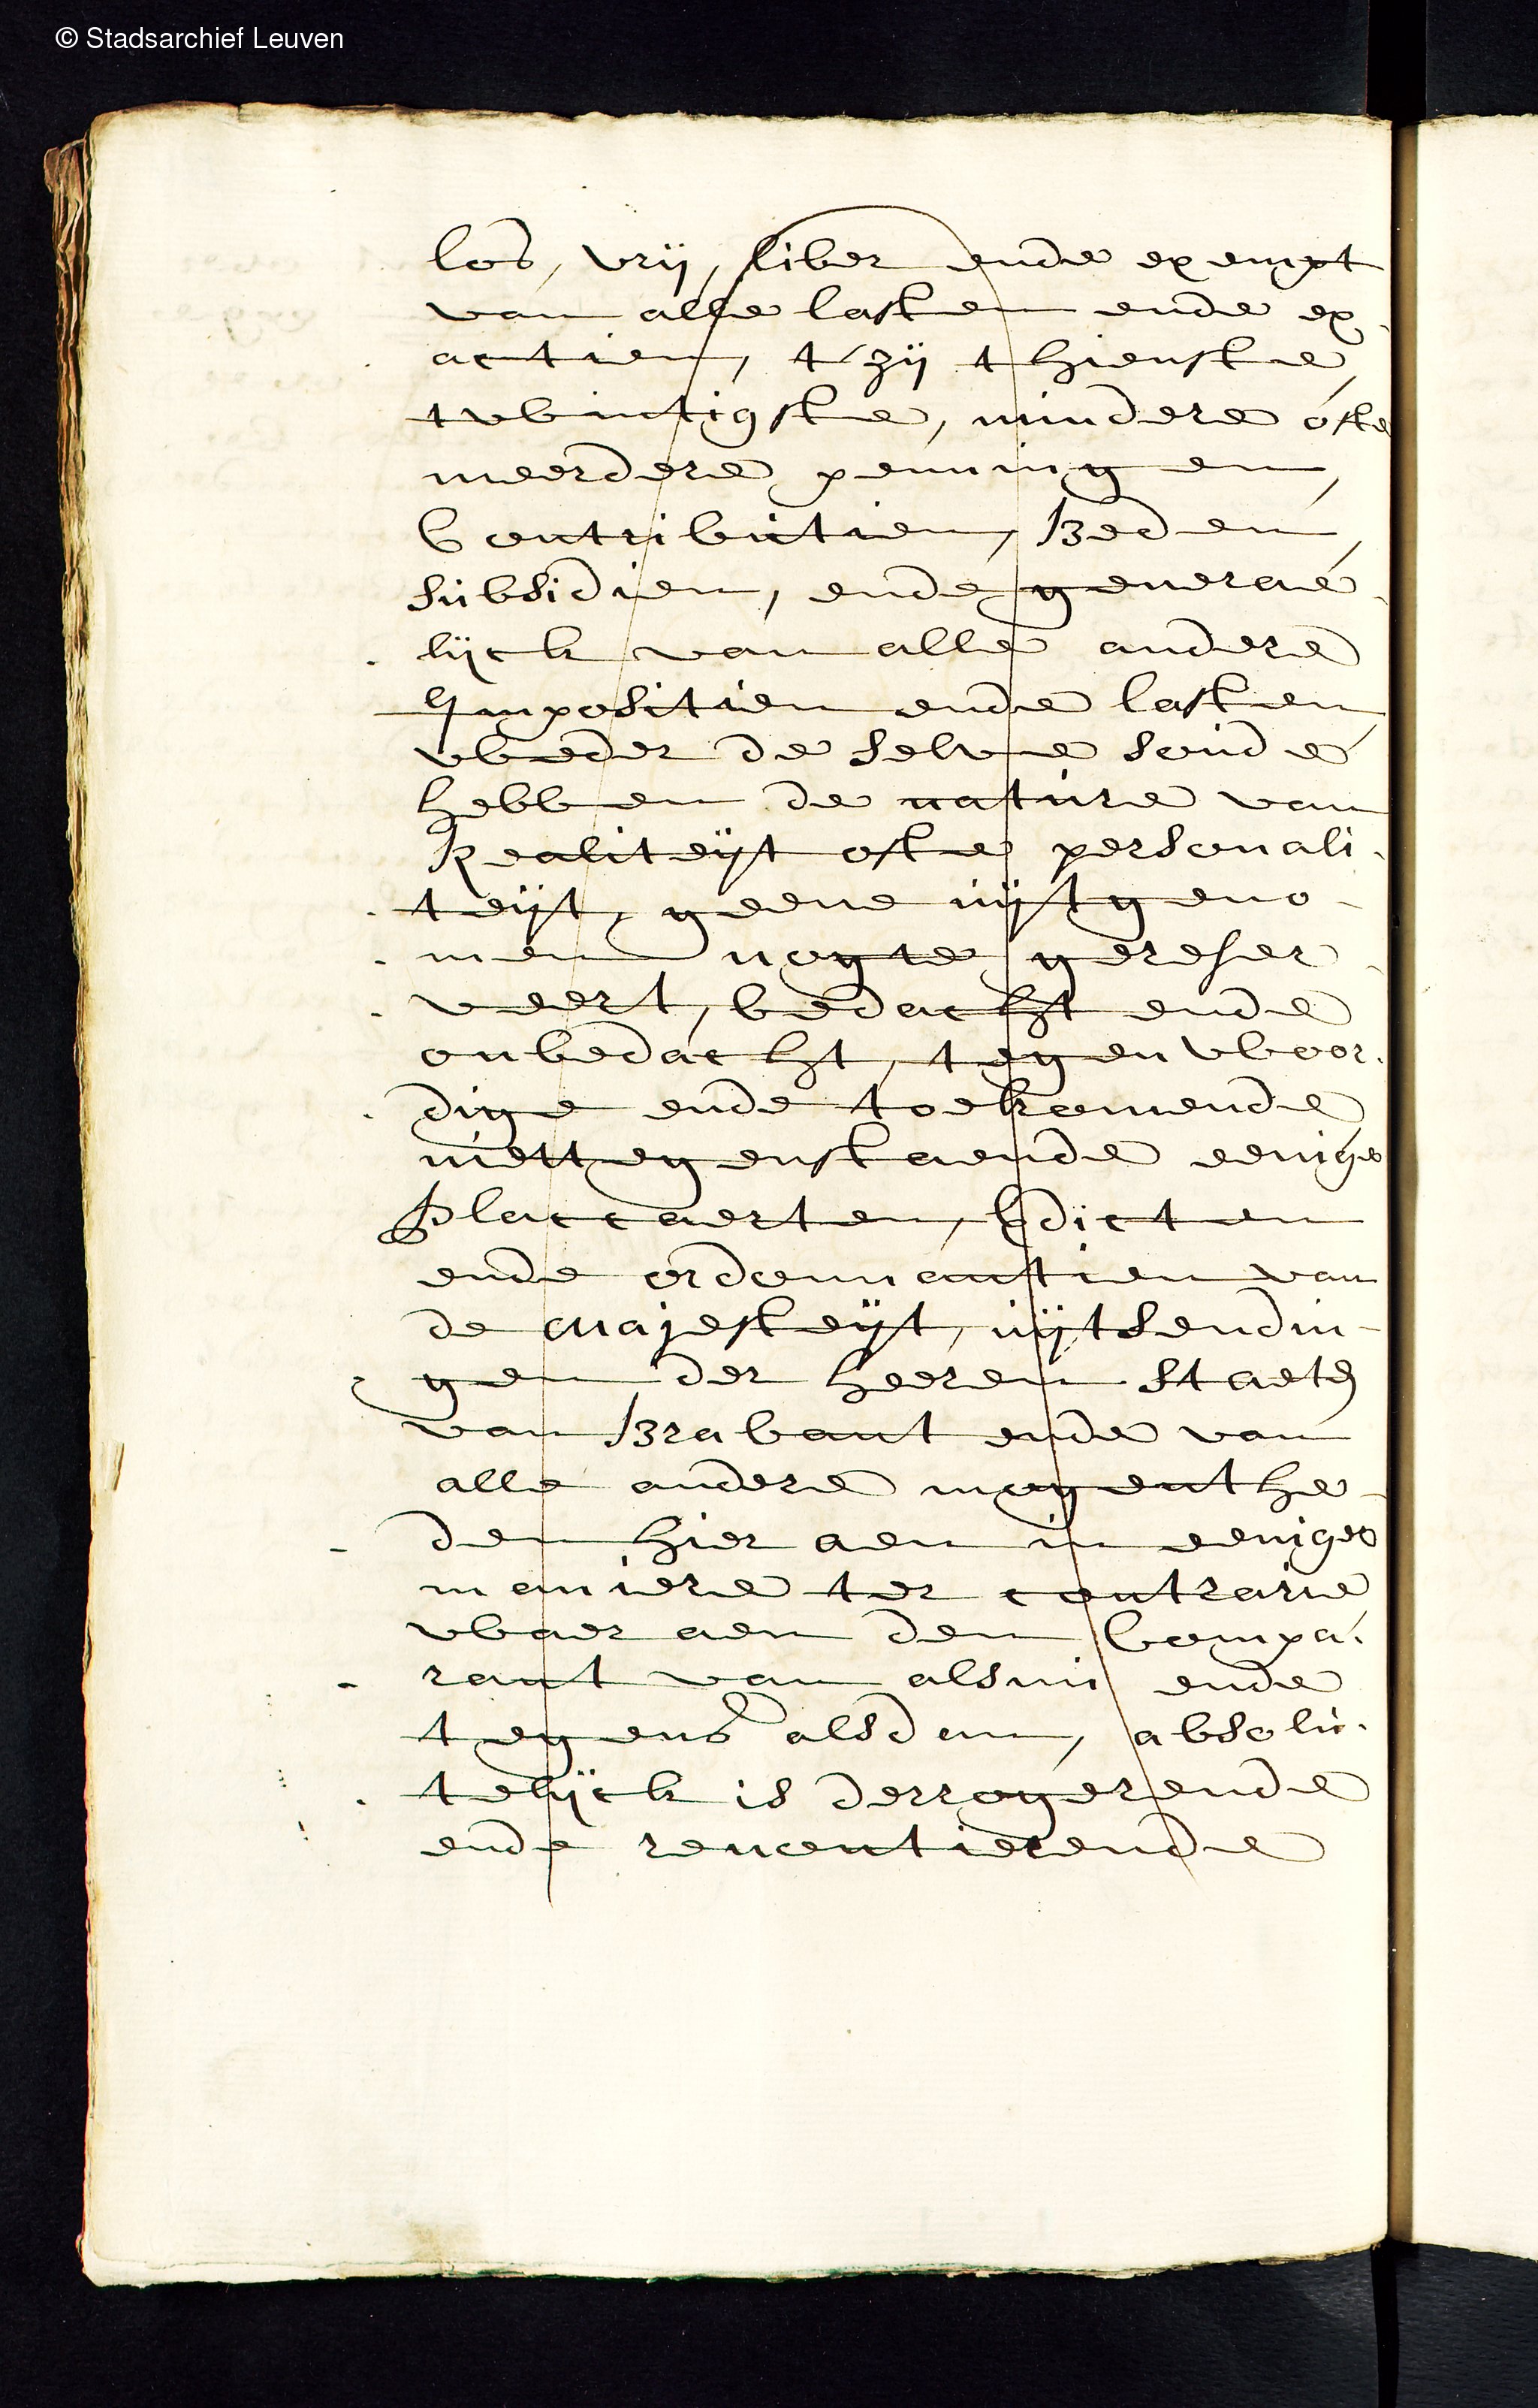 © Stadsarchief Leuven
los, vrij, liber ende exempt
van alle lasten ende ex¬
actien, t'zij thienste,
twintigste, mindere ofte
meerdere penningen,
Contributien, Beden,
subsidien, ende generae¬
lijck van alle andere
Impositien ende lasten
weder de selve soude
hebben de nature van
Realiteijt ofte personali¬
teijt, geene uijtgeno¬
men nogte gereser¬
veert, bedacht ende
onbedacht, tegenwoor¬
dige ende toekomende
niettegenstaende eenige
Placcaerten, Edicten
ende ordonnantien van
de Majesteijt, uijtsendin¬
gen der heeren Staeten
van Brabant ende van
alle andere mogenthe¬
den hier aen in eenige
maniere ter contrarie
waer aen den Compa¬
rant van alsnu ende
tegens alsdan, absolu¬
telijck is derrogerende
ende renontierende